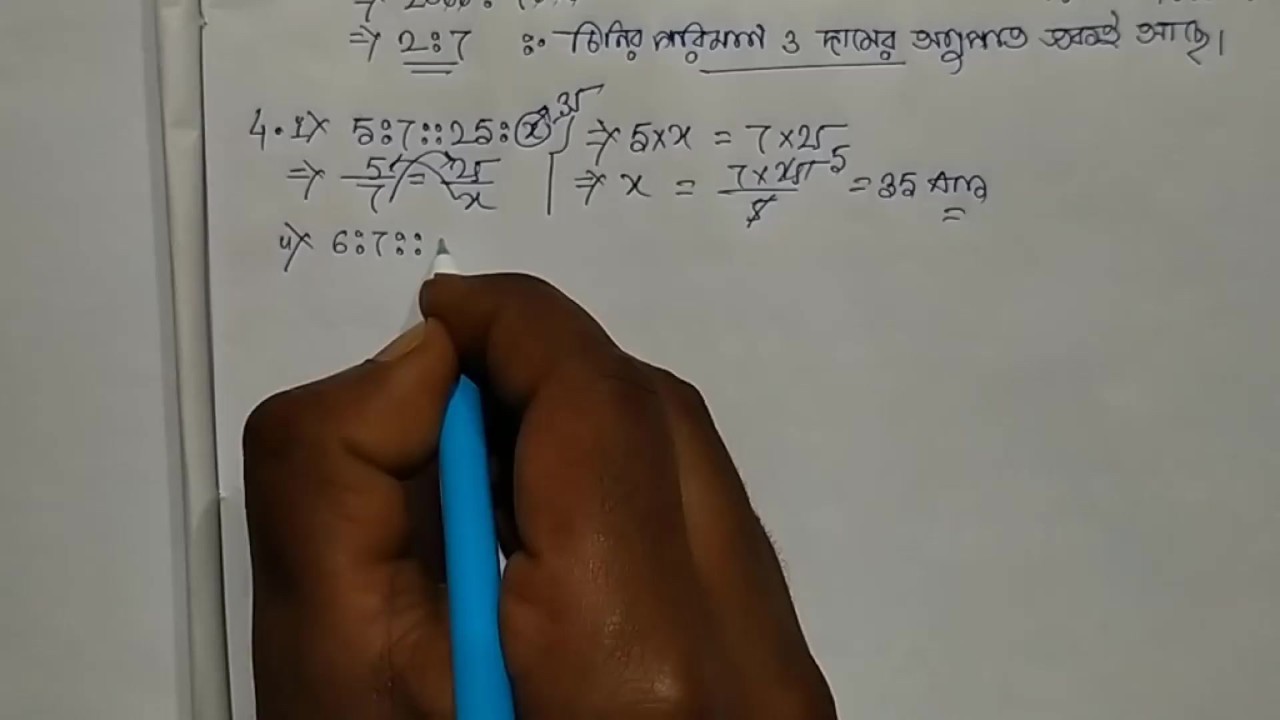 ⇒ 2:7 ∴ চিনির পরিমাণ ও দামের অনুপাত একই আছে।
4. i) 5:7::25:x 35 ⇒ 5×x = 7×25
⇒ 5/7 = 25/x ⇒ x = 7×25/5 5 = 35 Ans
ii) 6:7::